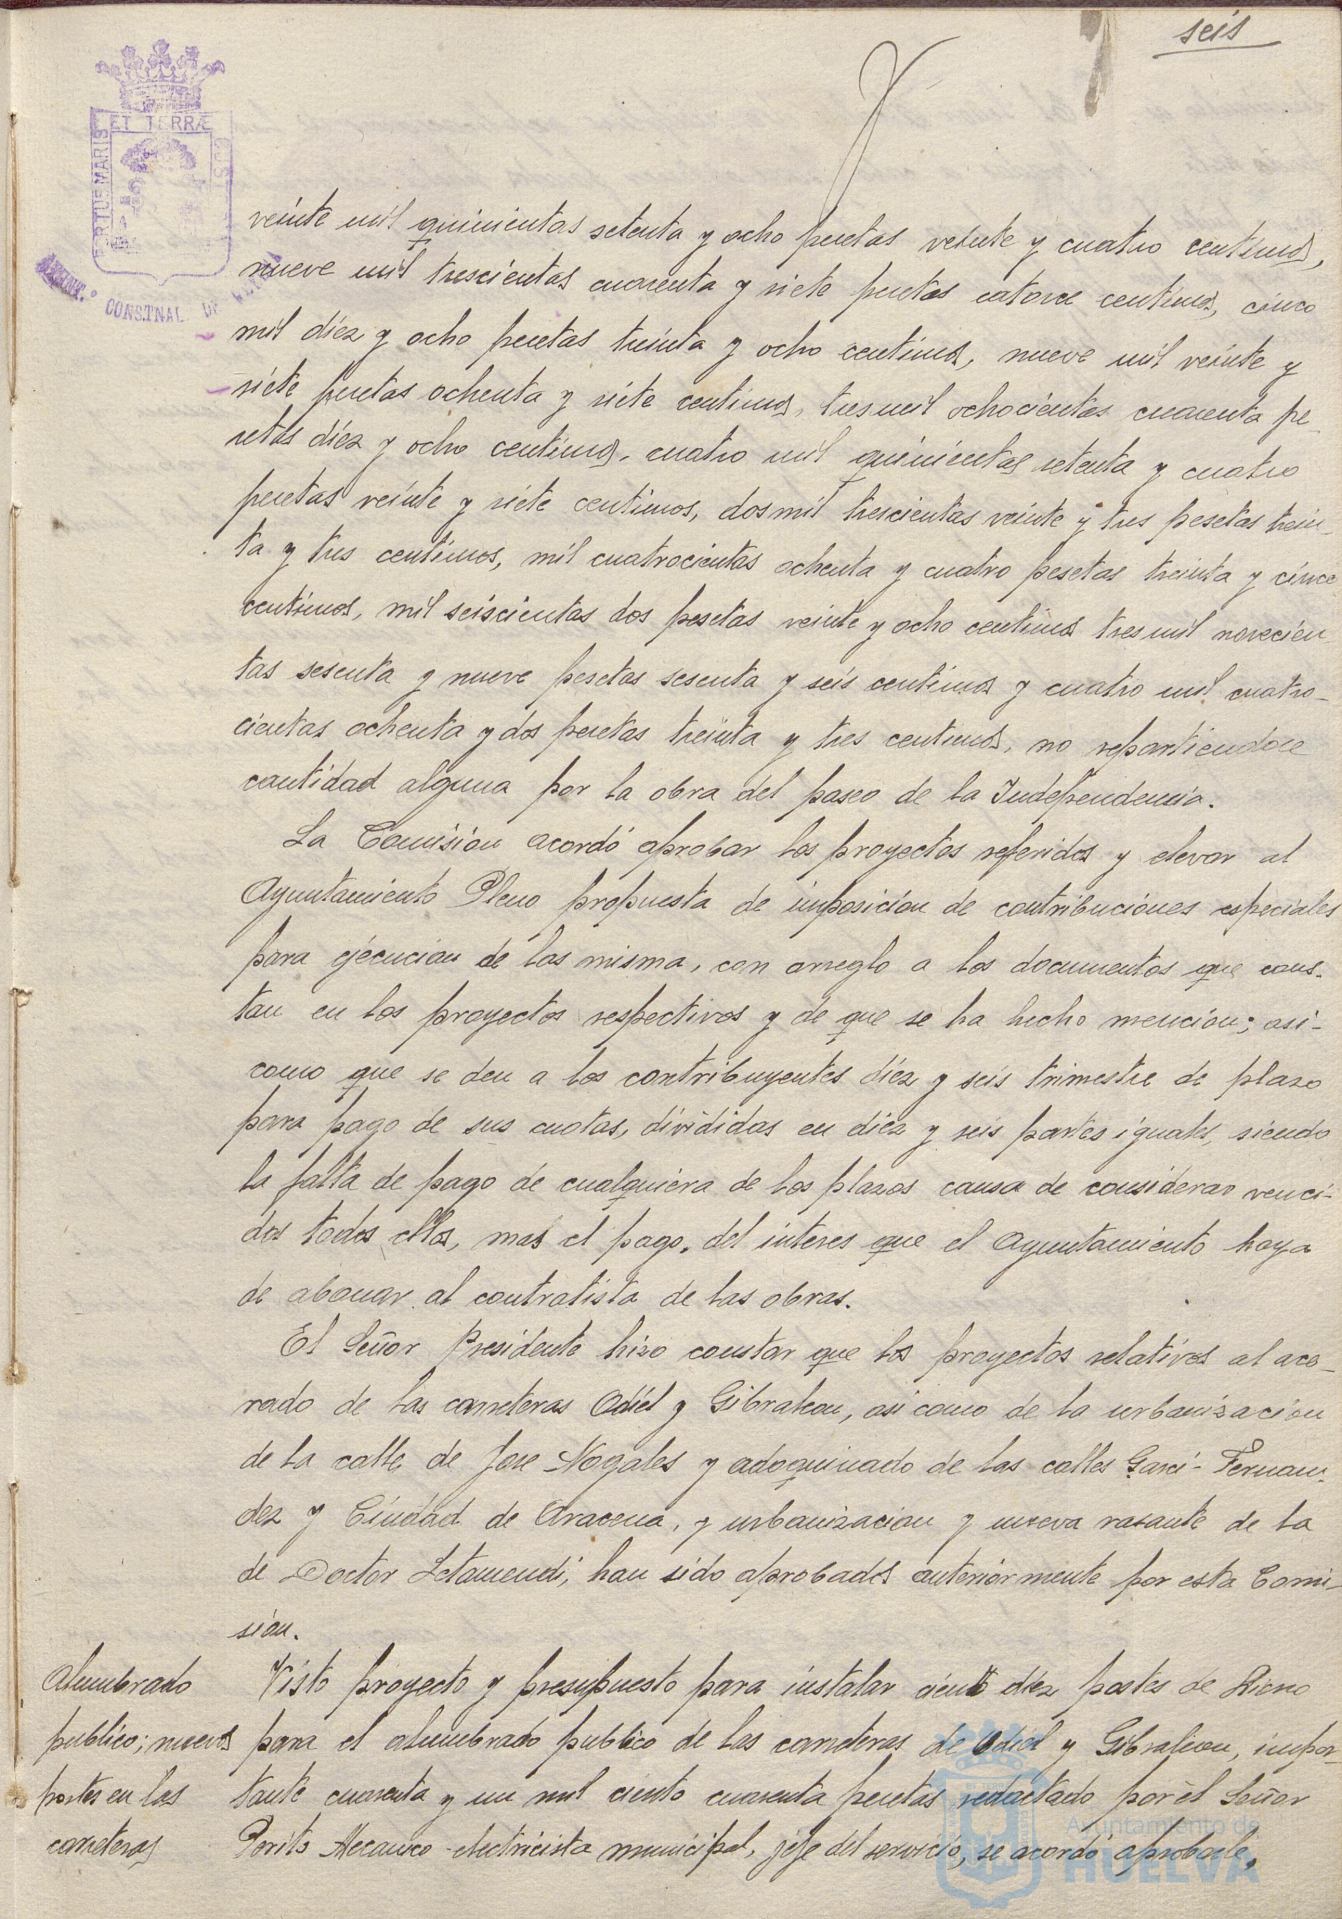 seis
PORTUS MARIS ET TERRÆ CUST
CONSTNAL DE
veinte mil quinientas setenta y ocho pesetas veinte y cuatro centimos,
nueve mil trescientas cuarenta y siete pesetas catorce centimos, cinco
mil diez y ocho pesetas treinta y ocho centimos, nueve mil veinte y
siete pesetas ochenta y siete centimos, tres mil ochocientas cuarenta pe-
setas diez y ocho centimos, cuatro mil quinientas setenta y cuatro
pesetas veinte y siete centimos, dos mil trescientas veinte y tres pesetas trein-
ta y tres centimos, mil cuatrocientas ochenta y cuatro pesetas treinta y cinco
centimos, mil seiscientas dos pesetas veinte y ocho centimos tres mil novecien
tas sesenta y nueve pesetas sesenta y seis centimos y cuatro mil cuatro-
cientas ochenta y dos pesetas treinta y tres centimos, no repartiendose
cantidad alguna por la obra del paseo de la Independencia.
La Comisión acordó aprobar los proyectos referidos y elevar al
Ayuntamiento Pleno propuesta de imposicion de contribuciones especiales
para ejecucion de las misma, con arreglo a los documentos que cons-
tan en los proyectos respectivos y de que se ha hecho mencion; asi-
como que se den a los contribuyentes diez y seis trimestre de plazo
para pago de sus cuotas, divididas en diez y seis partes iguales, siendo
la falta de pago de cualquiera de los plazos causa de considerar venci-
dos todos ellos, mas el pago, del interes que el Ayuntamiento haya
de abonar al contratista de las obras.
El Señor Presidente hizo constar que los proyectos relativos al ace-
rado de las carreteras Odiel y Gibraleon, asi como de la urbanizacion
de la calle de Jose Nogales y adoquinado de las calles Garci-Fernan-
dez y Ciudad de Aracena, y urbanizacion y nueva rasante de la
de Doctor Letamendi, han sido aprobados anteriormente por esta Comi-
sion.
Alumbrado
publico; nuevos
postes en las
carreteras
Visto proyecto y presupuesto para instalar ciento diez postes de
para el alumbrado publico de las carreteras de Odiel y Gibraleon, impor-
tante cuarenta y un mil ciento cuarenta pesetas redactado por el Señor
Perito Mecanico-electricista municipal, jefe del servicio, se acordó aprobarle.
Ayuntamiento de
HUELVA